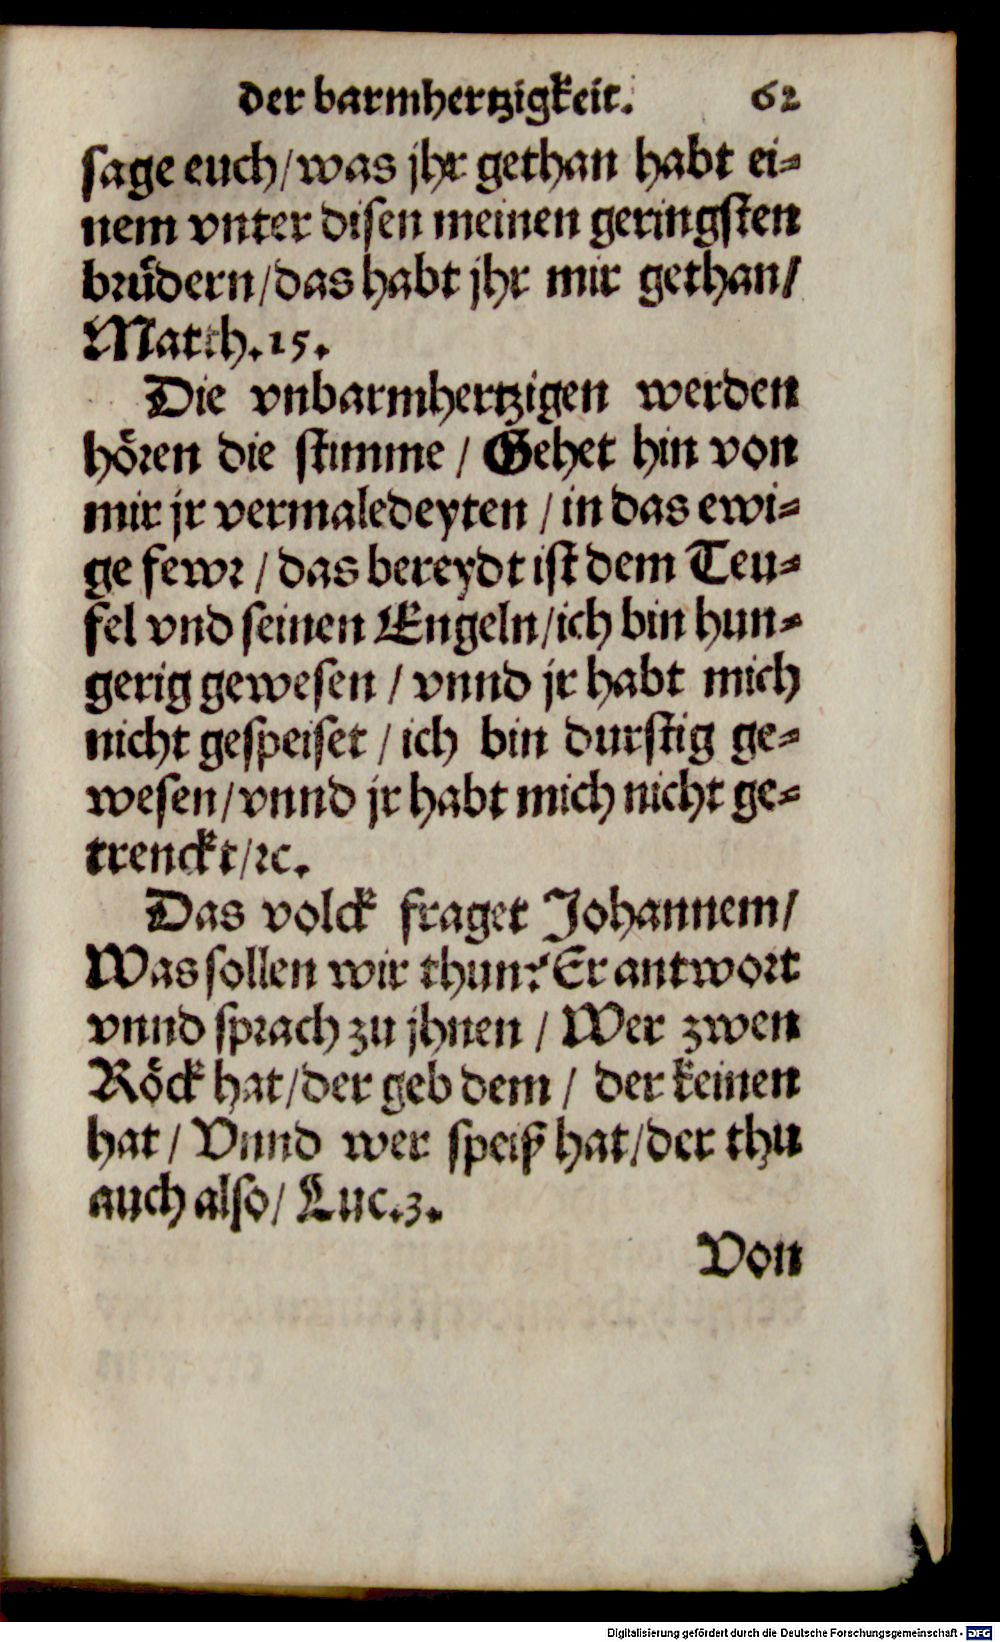 der barmhertzigkeit. 62
sage euch/was jhr gethan habt ei⸗
nem vnter disen meinen geringsten
bruͤdern/das habt jhr mir gethan/
Matth.15.
Die vnbarmhertzigen werden
hoͤren die stimme / Gehet hin von
mir jr vermaledeyten / in das ewi⸗
ge fewr / das bereydt ist dem Teu⸗
fel vnd seinen Engeln/ich bin hun⸗
gerig gewesen / vnnd jr habt mich
nicht gespeiset / ich bin durstig ge⸗
wesen/vnnd jr habt mich nicht ge⸗
trenckt/ꝛc.
Das volck fraget Johannem/
Was sollen wir thun? Er antwort
vnnd sprach zu jhnen / Wer zwen
Roͤck hat/der geb dem / der keinen
hat / Vnnd wer speiß hat/der thu
auch also/ Luc.3.
Von
Digitalisierung gefördert durch die Deutsche Forschungsgemeinschaft - DFG